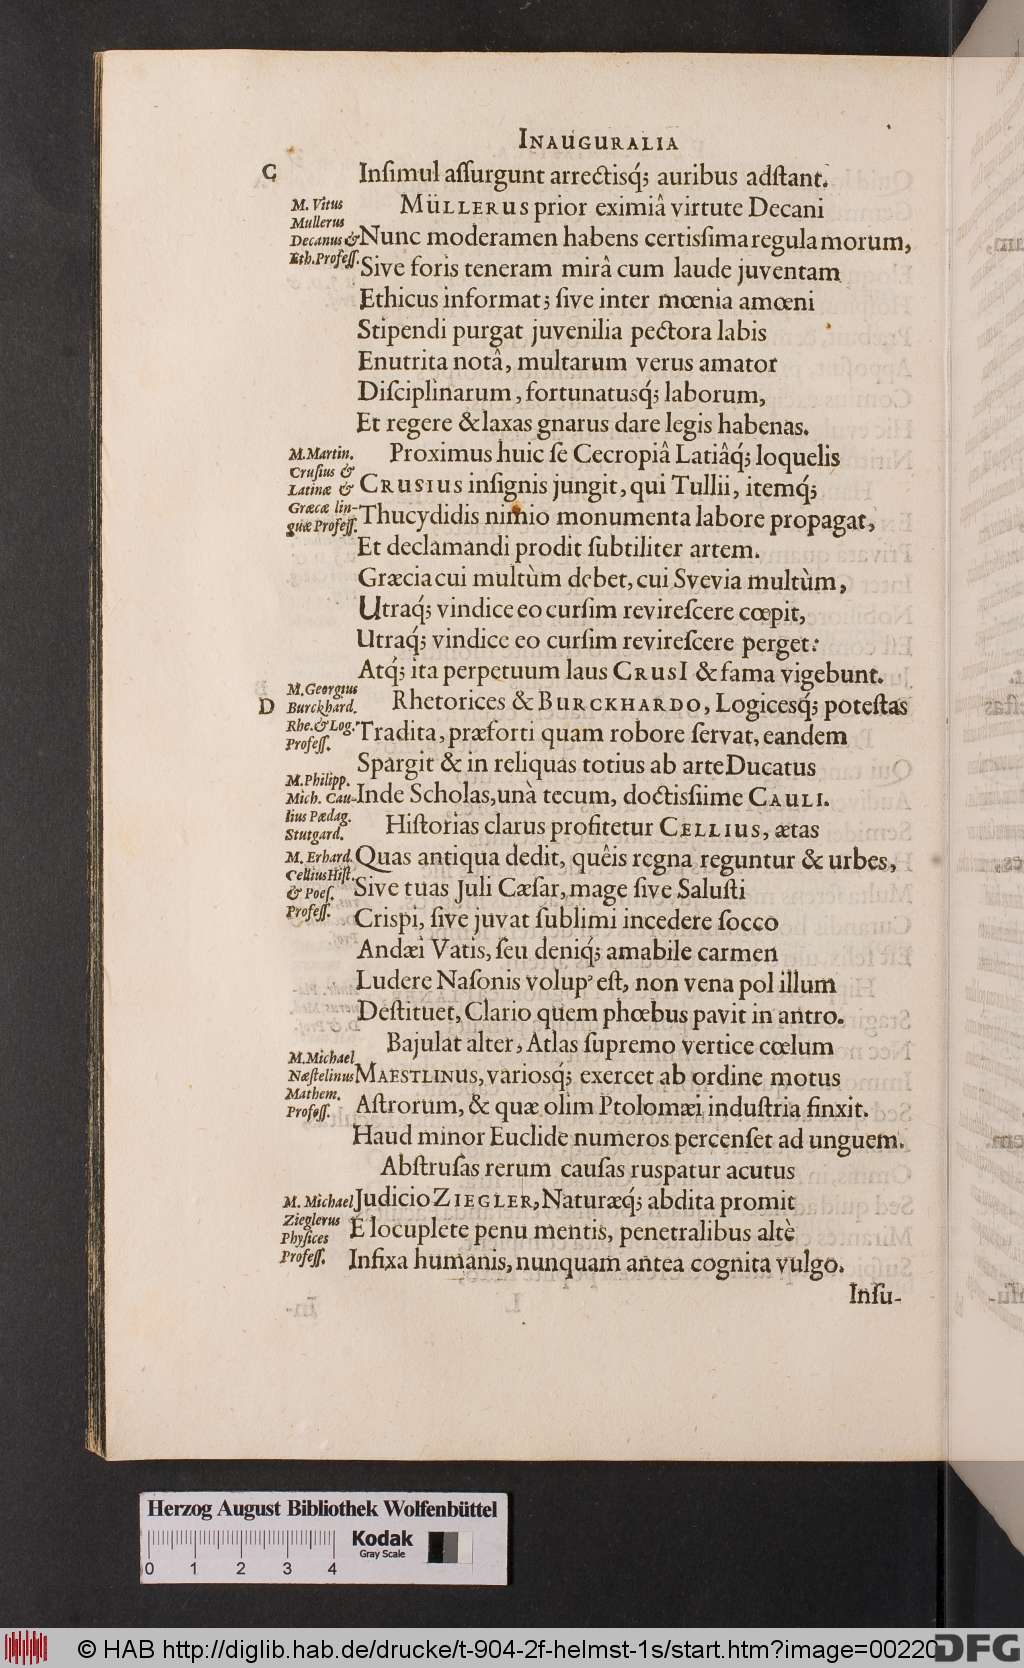 INAUGURALIA
C
Inſimul aſſurgunt arrectisq́; auribus adſtant.
M. Vitus
Mullerus
Decanus &
Eth. Profeſſ.
MÜLLERUS prior eximiâ virtute Decani
Nunc moderamen habens certisſima regula morum,
Sive foris teneram mirâ cum laude juventam
Ethicus informat; ſive inter mœnia amœni
Stipendi purgat juvenilia pectora labis
Enutrita notâ, multarum verus amator
Diſciplinarum, fortunatusq́; laborum,
Et regere & laxas gnarus dare legis habenas.
M. Martin.
Cruſius &
Latinæ &
Græcæ lin-
guæ Profeſſ.
Proximus huic ſe Cecropiâ Latiâq́; loquelis
CRUSIUS inſignis jungit, qui Tullii, itemq́;
Thucydidis nimio monumenta labore propagat,
Et declamandi prodit ſubtiliter artem.
Græcia cui multùm debet, cui Svevia multùm,
Utraq́; vindice eo curſim revireſcere cœpit,
Utraq́; vindice eo curſim revireſcere perget:
Atq́; ita perpetuum laus CRUSI & fama vigebunt.
D
M. Georgius
Burckhard.
Rhe. & Log.
Profeſſ.
Rhetorices & BURCKHARDO, Logicesq́; poteſtas
Tradita, præforti quam robore ſervat, eandem
Spargit & in reliquas totius ab arte Ducatus
M. Philipp.
Mich. Cau-
lius Pædag.
Stutgard.
Inde Scholas, unà tecum, doctisſiime CAULI.
Hiſtorias clarus profitetur CELLIUS, ætas
M. Erhard.
Cellius Hiſt.
& Poeſ.
Profeſſ.
Quas antiqua dedit, quêis regna reguntur & urbes,
Sive tuas Juli Cæſar, mage ſive Saluſti
Criſpi, ſive juvat ſublimi incedere ſocco
Andæi Vatis, ſeu deniq́; amabile carmen
Ludere Naſonis volup' eſt, non vena pol illum
Deſtituet, Clario quem phœbus pavit in antro.
Bajulat alter, Atlas ſupremo vertice cœlum
M. Michael
Næſtelinus
Mathem.
Profeſſ.
MAESTLINUS, variosq́; exercet ab ordine motus
Aſtrorum, & quæ olim Ptolomæi induſtria finxit.
Haud minor Euclide numeros percenſet ad unguem.
Abſtruſas rerum cauſas ruspatur acutus
M. Michael
Zieglerus
Phyſices
Profeſſ.
Judicio ZIEGLER, Naturæq́; abdita promit
E locuplete penu mentis, penetralibus altè
Infixa humanis, nunquam antea cognita vulgo.
Inſu-
Herzog August Bibliothek Wolfenbüttel
Kodak
Gray Scale
0 1 2 3 4
© HAB http://diglib.hab.de/drucke/t-904-2f-helmst-1s/start.htm?image=00220
DFG